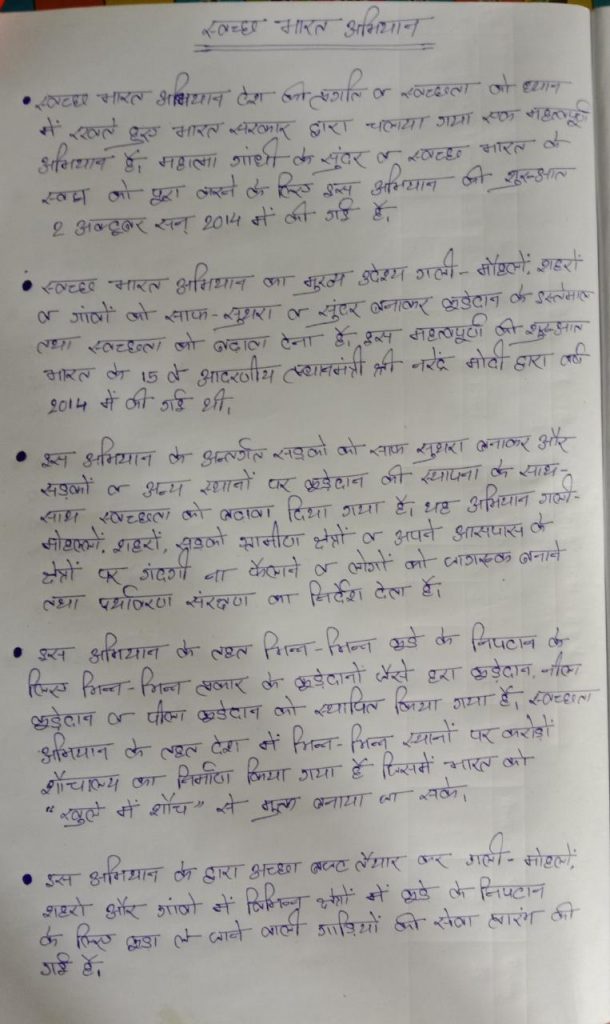 स्वच्छ भारत अभियान
• स्वच्छ भारत अभियान देश की प्रगति व स्वच्छता को ध्यान
में रखते हुए भारत सरकार द्वारा चलाया गया एक महत्वपूर्ण
अभियान है। महात्मा गांधी के सुंदर व स्वच्छ भारत के
स्वप्न को पूरा करने के लिए इस अभियान की शुरुआत
2 अक्टूबर सन् 2014 में की गई है।
• स्वच्छ भारत अभियान का मुख्य उदेश्य गली-मौहलों, शहरों
व गांवों को साफ-सुथरा व सुंदर बनाकर कूडेदान के इस्तेमाल
तथा स्वच्छता को बढावा देना है। इस महत्वपूर्ण की शुरुआत
भारत के 15 वे आदरणीय प्रधानमंत्री श्री नरेंद्र मोदी द्वारा वर्ष
2014 में की गई थी।
• इस अभियान के अन्तर्गत सड़को को साफ सुथरा बनाकर और
सड़कों व अन्य स्थानों पर कूड़ेदान की स्थापना के साथ-
साथ स्वच्छता को बढावा दिया गया है। यह अभियान गली-
मोहल्लों, शहरों, सड़को ग्रामीण क्षेत्रों व अपने आसपास के
क्षेत्रों पर गंदगी ना फैलाने व लोगों को जागरूक बनाने
तथा पर्यावरण संरक्षण का निर्देश देता है।
• इस अभियान के तहत भिन्न-भिन्न कूडे के निपटान के
लिए भिन्न-भिन्न प्रकार के कूड़ेदानों जैसे हरा कूड़ेदान, नीला
कूड़ेदान व पीला कूड़ेदान को स्थापित किया गया है। स्वच्छता
अभियान के तहत देश में भिन्न-भिन्न स्थानों पर करोड़ों
शौचालय का निर्माण किया गया है जिसमें भारत को
"खुले में शौच" से मुक्त बनाया जा सके।
• इस अभियान के द्वारा अच्छा बजट तैयार कर गली-मोहलों,
शहरो और गांवो में विभिन्न क्षेत्रों में कूडे के निपटान
के लिए कूड़ा ले जाने वाली गाड़ियों की सेवा प्रारंभ की
गई है।